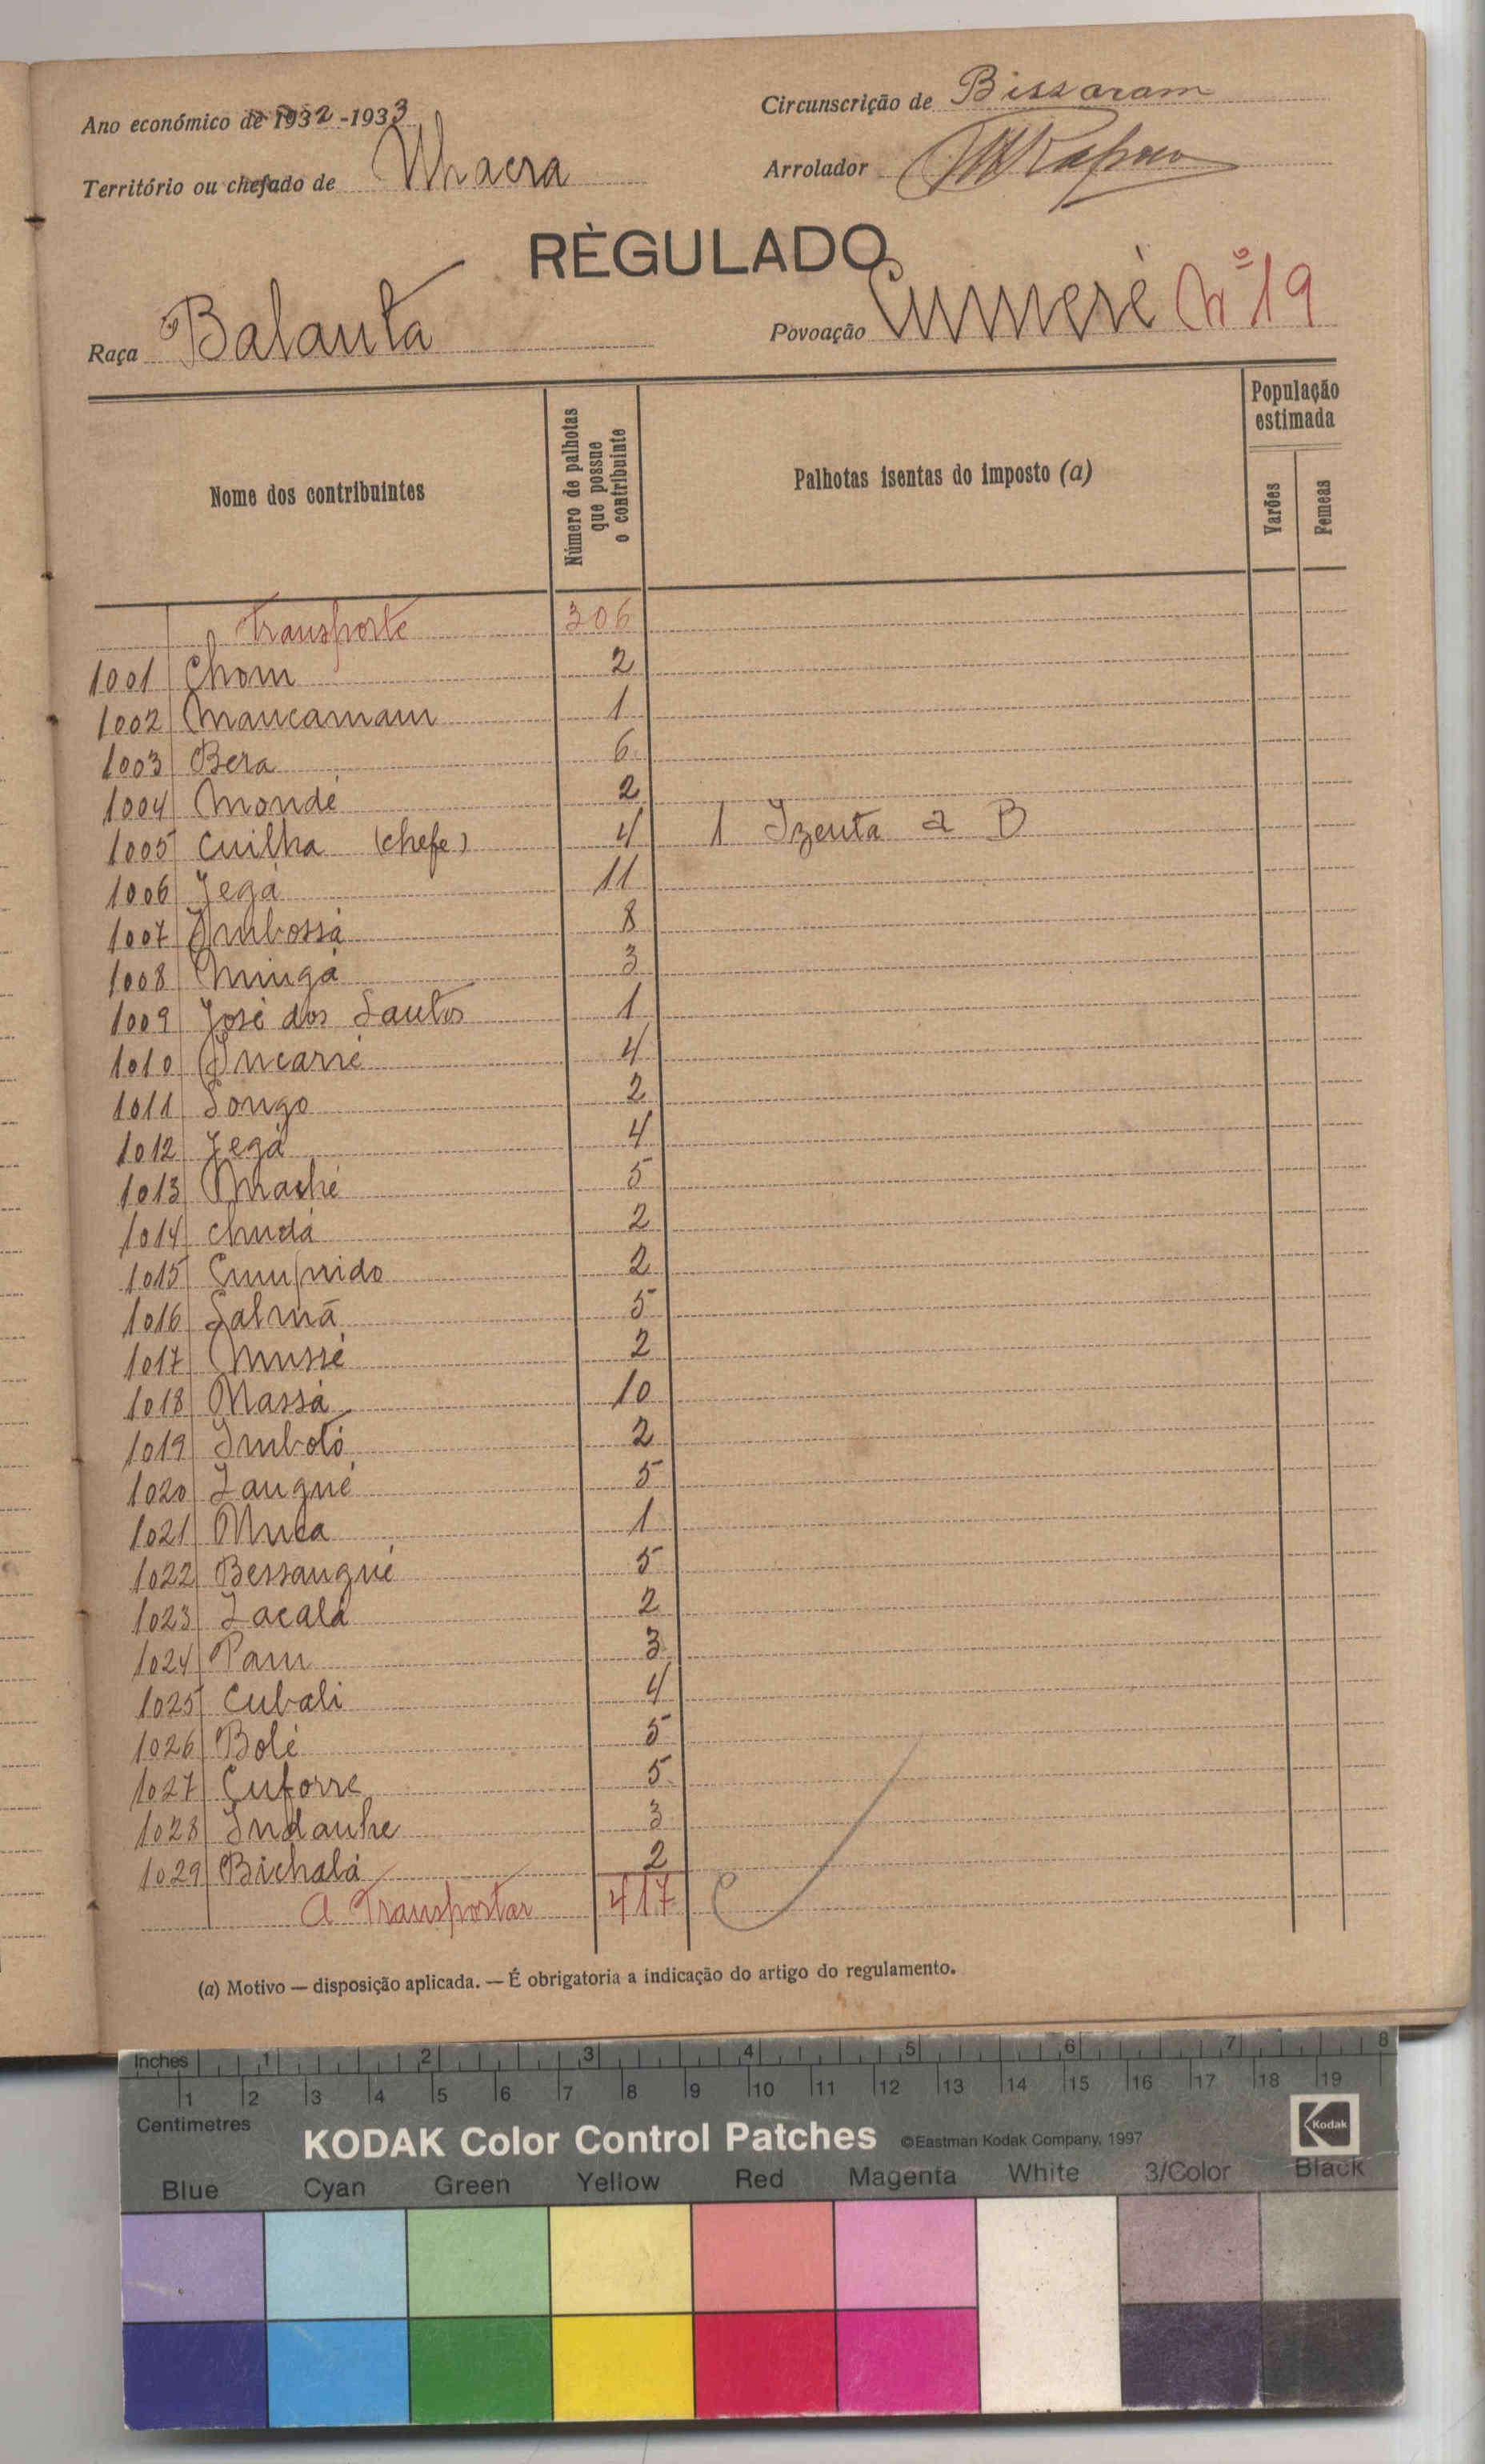 Ano económico de 1932-1933
Circunscrição de Bissoram
Território ou chefado de Nhacra
Arrolador
RÈGULADO
Raça Balanta
Povoação Cumeré Nº 19
Nome dos contribuintes
Número de palhotas que possue o contribuinte
Palhotas isentas do imposto (a)
População estimada
Varões
Femeas
Transporte 306
1001 Chom 2
1002 Mancamam 1
1003 Bera 6
1004 Mondé 2
1005 Cuilha (chefe) 4 1 Izenta a B
1006 Jegá 11
1007 Imbossá 8
1008 Mingá 3
1009 José dos Santos 1
1010 Incarré 4
1011 Songo 2
1012 Jegá 4
1013 Maché 5
1014 Chudá 2
1015 Cumpnido 2
1016 Salmã 5
1017 Mussé 2
1018 Massá 10
1019 Imbotó 2
1020 Zangué 5
1021 Muca 1
1022 Bessangué 5
1023 Zacalá 2
1024 Pam 3
1025 Cubali 4
1026 Bolé 5
1027 Cuforre 5
1028 Indanhe 3
1029 Bichalá 2
A Transportar 417
(a) Motivo — disposição aplicada. — É obrigatoria a indicação do artigo do regulamento.
Inches 1 2 3 4 5 6 7 8
1 2 3 4 5 6 7 8 9 10 11 12 13 14 15 16 17 18 19
Centimetres
KODAK Color Control Patches ©Eastman Kodak Company, 1997 Kodak
Blue Cyan Green Yellow Red Magenta White 3/Color Black